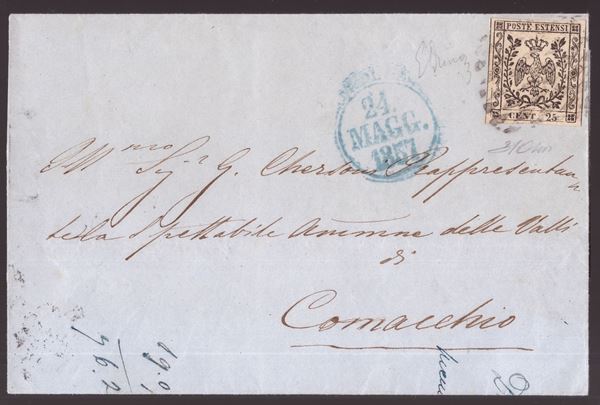 POSTE ESTENSI
CENT. 25
24.
MAGG.
1857
Ill.mo Sig.r G. Chersoni Rappresentan
te la Spettabile Amm.ne delle Valli
di
Comacchio